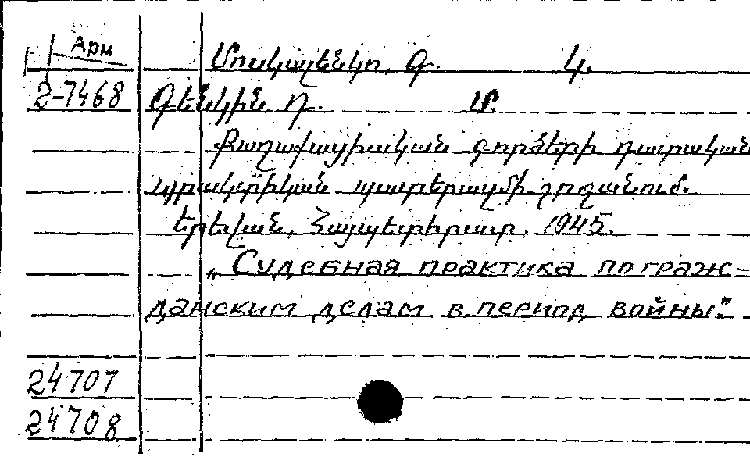 Арм
Մոսկալենկո, Գ. Կ.
2-7468 Գենկին Դ. Մ.
Քաղաքացիական գործերի դատական
պրակտիկան պատերազմի շրջանում.
Երևան, Հայպետհրատ, 1945.
„Судебная практика по граж-
данским делам в период войны".
24707
24708